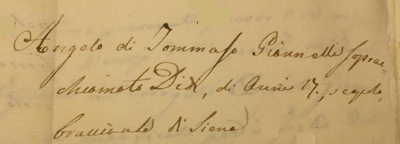 Angelo di Tommaso Giannelli sopra=
chiamato Dix, di Anni 17, scapolo,
bracciante di Siena